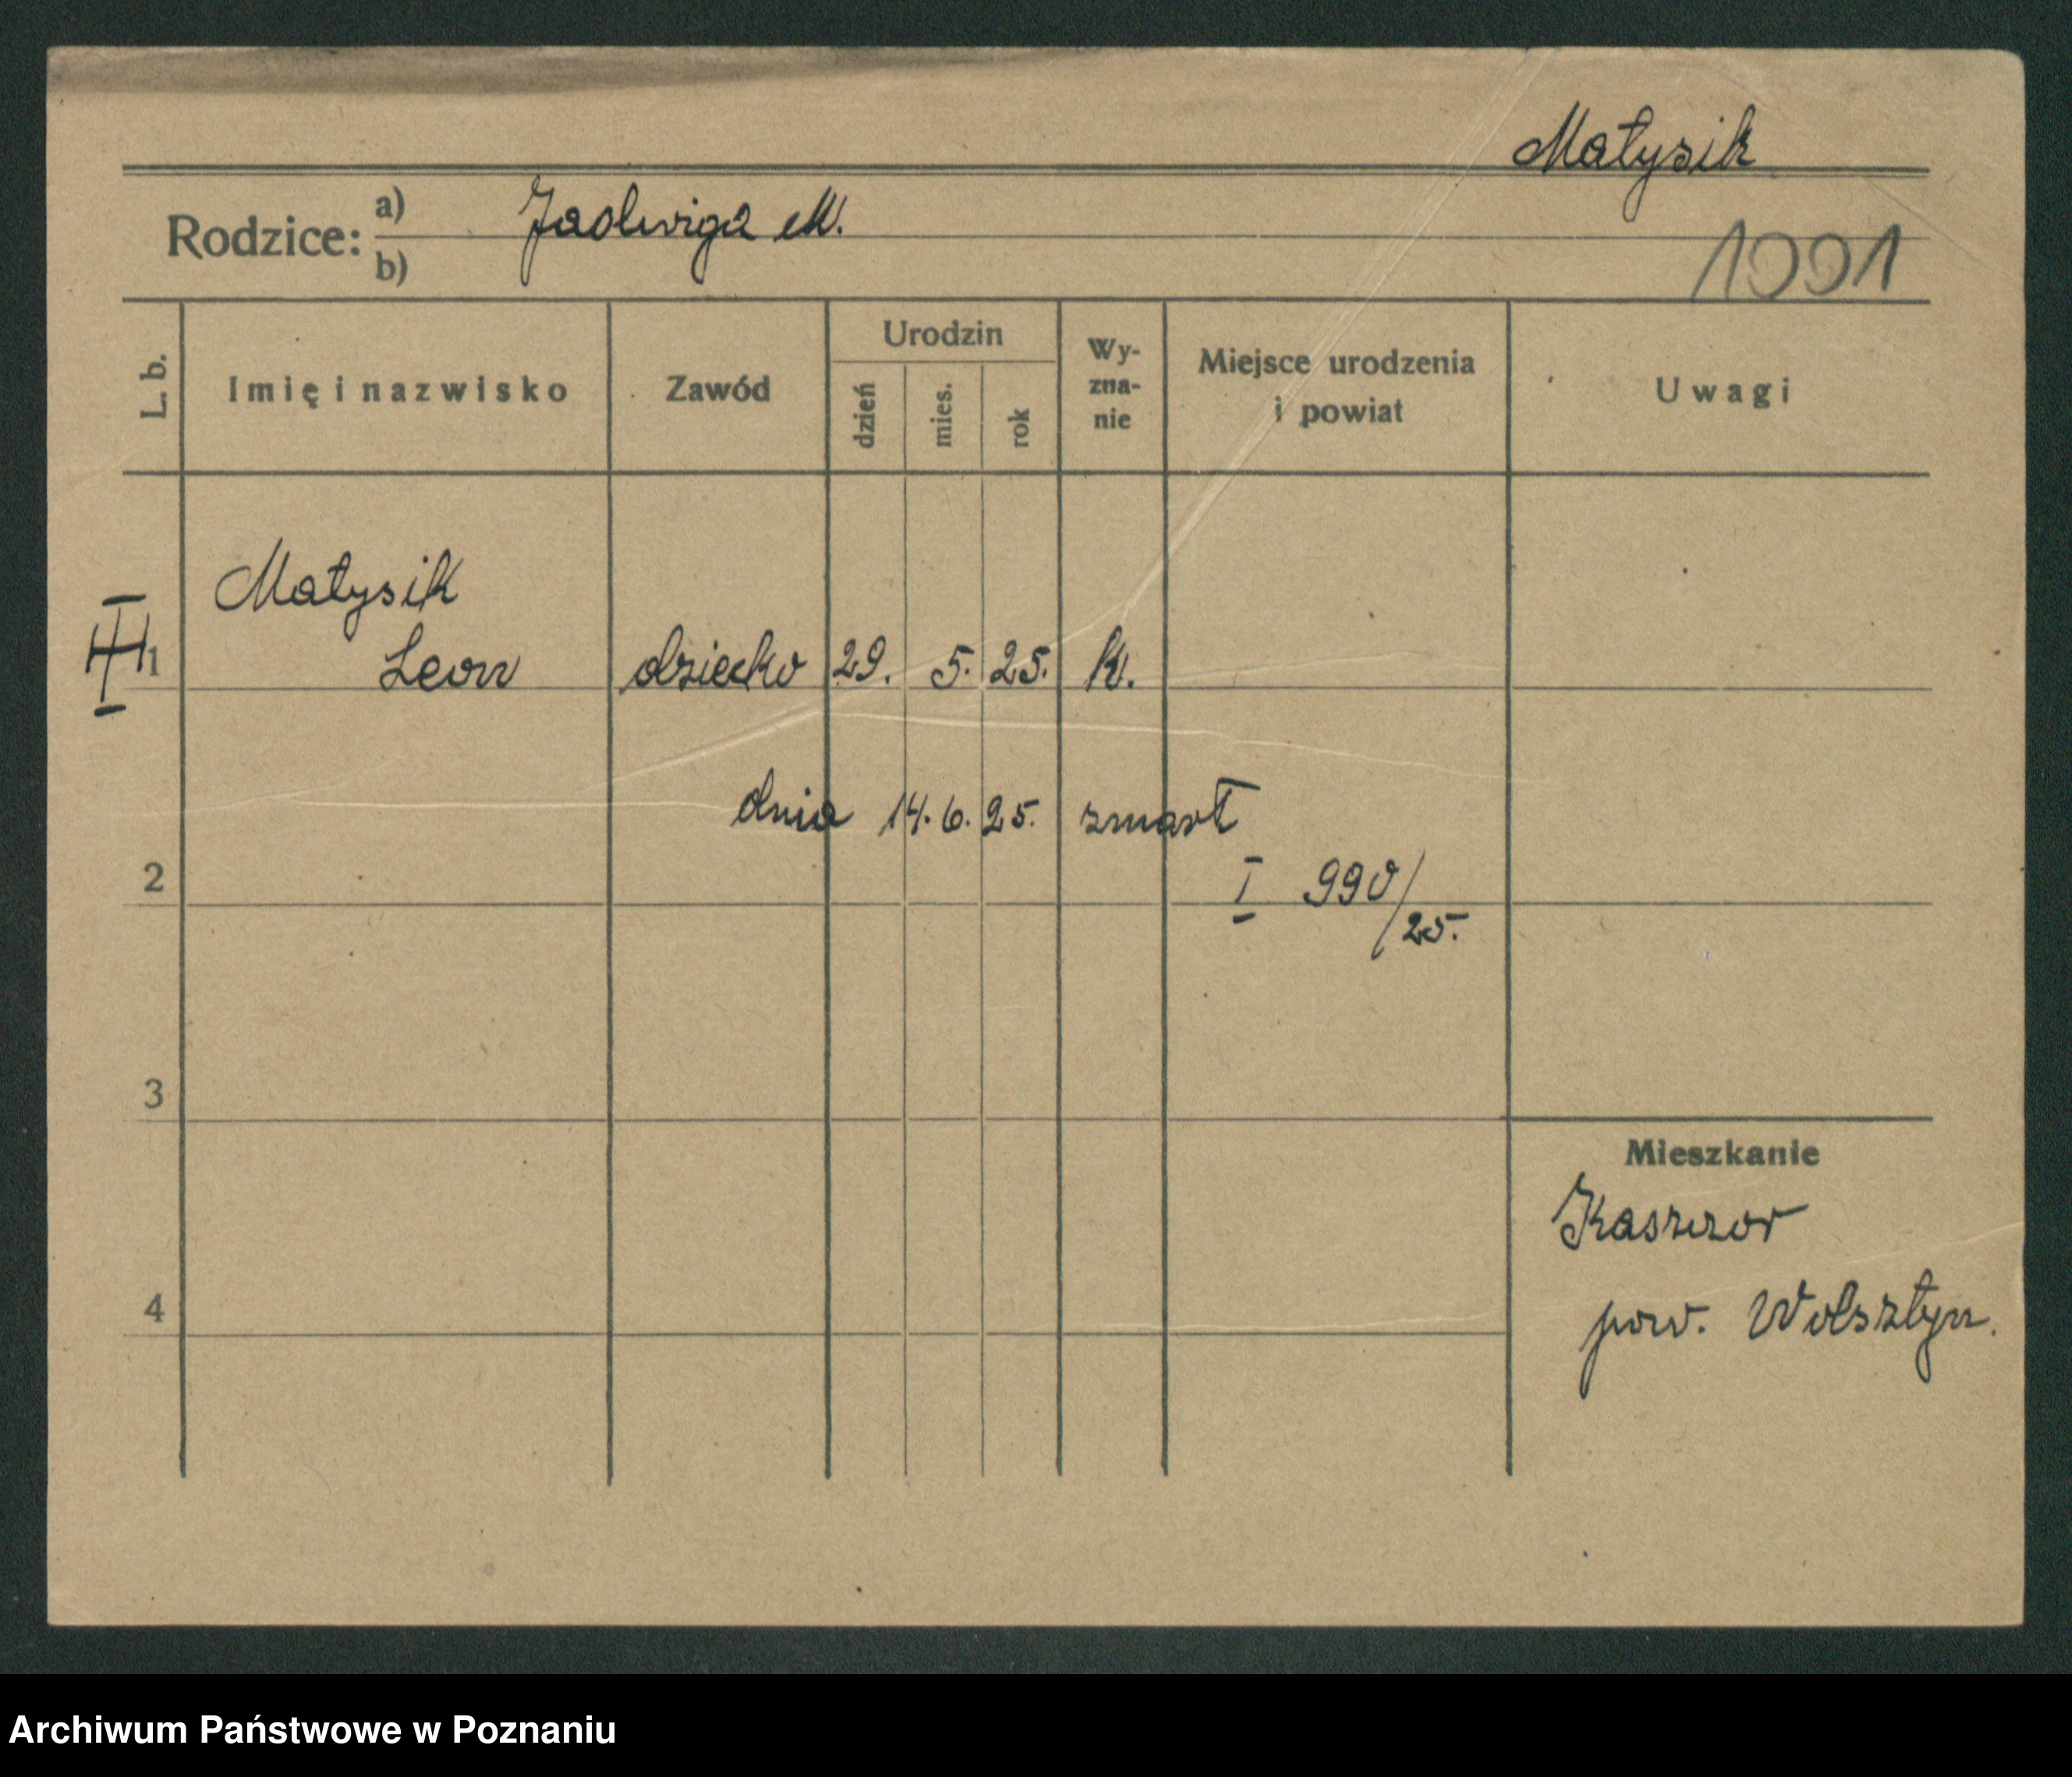 Matysik
Rodzice: a) Jadwiga M.
b)
1991
L. b. Imię i nazwisko Zawód Urodzin dzień mies. rok Wy-zna-nie Miejsce urodzenia i powiat Uwagi
Matysik
1 Leon dziecko 29. 5. 25. k.
dnia 14. 6. 25. zmarł
2 I 990/25.
3
Mieszkanie
Kaszczor
4 pow. Wolsztyn.
Archiwum Państwowe w Poznaniu